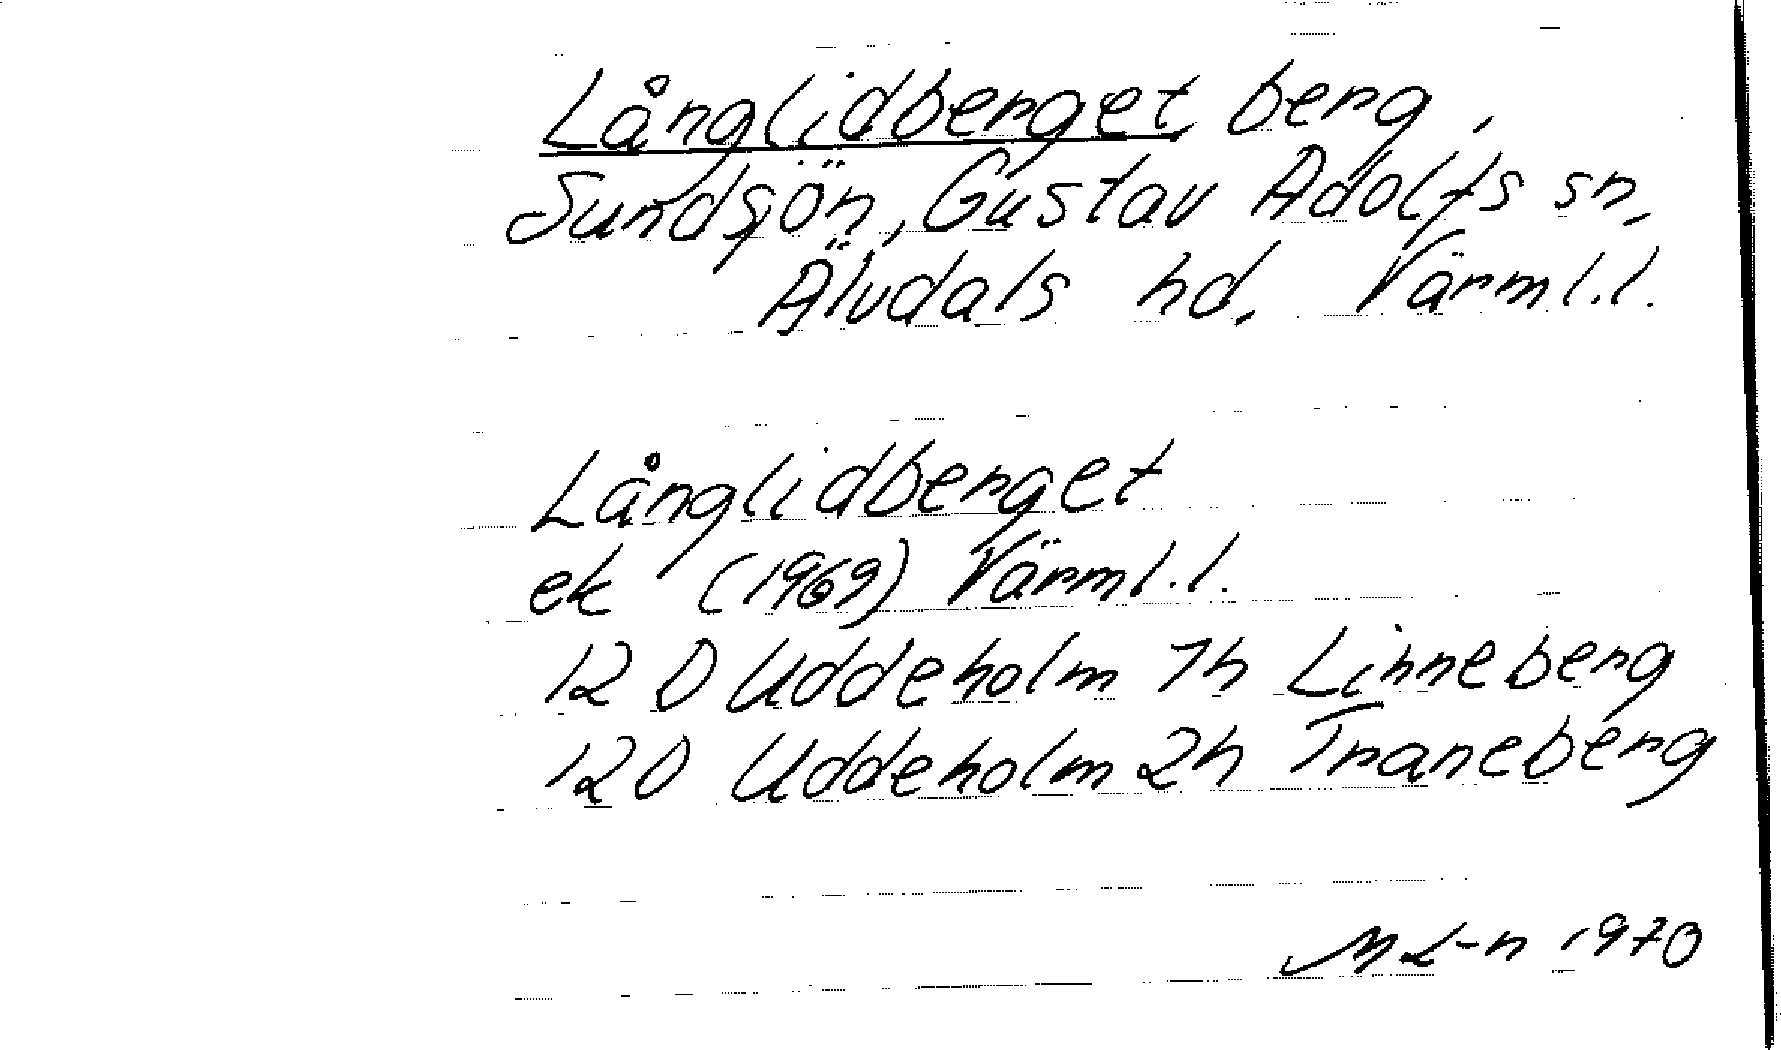 Långlidberget, berg,
Sundsjön, Gustav Adolfs sn,
Älvdals hd, Värml.l.
Långlidberget
ek (1969) Värml.l.
12 D Uddeholm 1h Linneberg
12D Uddeholm 2h Traneberg
M L-n 1970